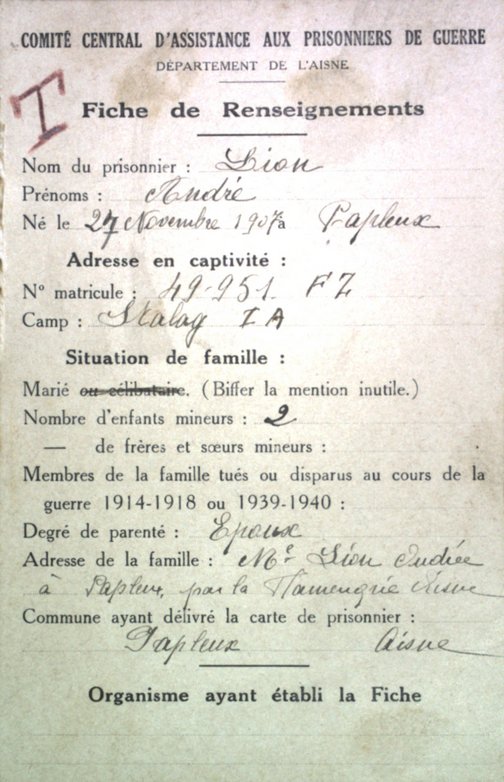 COMITÉ CENTRAL D'ASSISTANCE AUX PRISONNIERS DE GUERRE
DÉPARTEMENT DE L'AISNE
T
Fiche de Renseignements
Nom du prisonnier : Lion
Prénoms : André
Né le 27 Novembre 1907 à Papleux
Adresse en captivité :
N° matricule : 49-951 FZ
Camp : Stalag IA
Situation de famille :
Marié ou célibataire. (Biffer la mention inutile.)
Nombre d'enfants mineurs : 2
— de frères et sœurs mineurs :
Membres de la famille tués ou disparus au cours de la
guerre 1914-1918 ou 1939-1940 :
Degré de parenté : Epoux
Adresse de la famille : Me Lion Andrée
à Papleux, par la Flamengrie Aisne
Commune ayant délivré la carte de prisonnier :
Papleux Aisne
Organisme ayant établi la Fiche